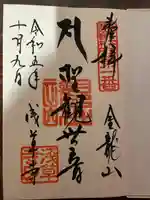 奉拝
金龍山
聖観世音
浅草寺
令和五年
十月九日